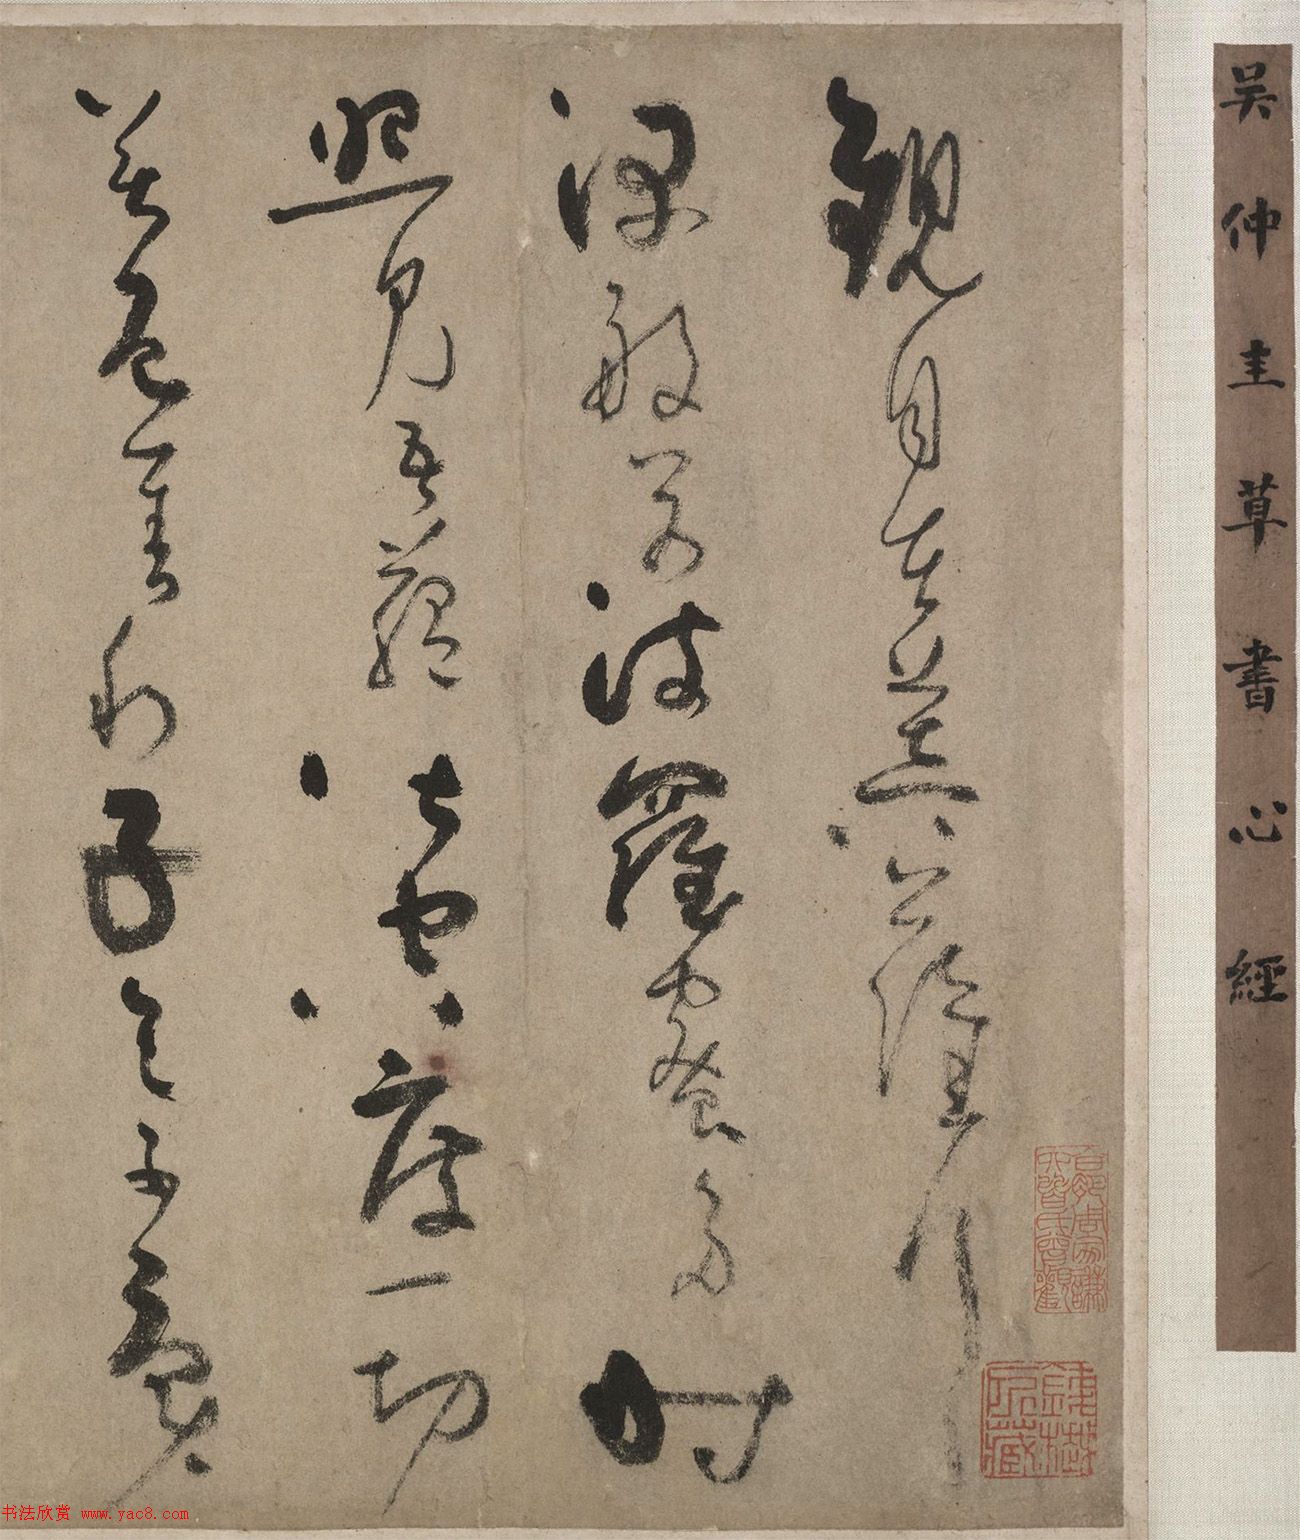 吳仲圭草書心經
觀自在菩薩行
深般若波羅蜜多時
照見五蘊皆空度一切
苦厄舍利子色不異
书法欣赏 www.yac8.com